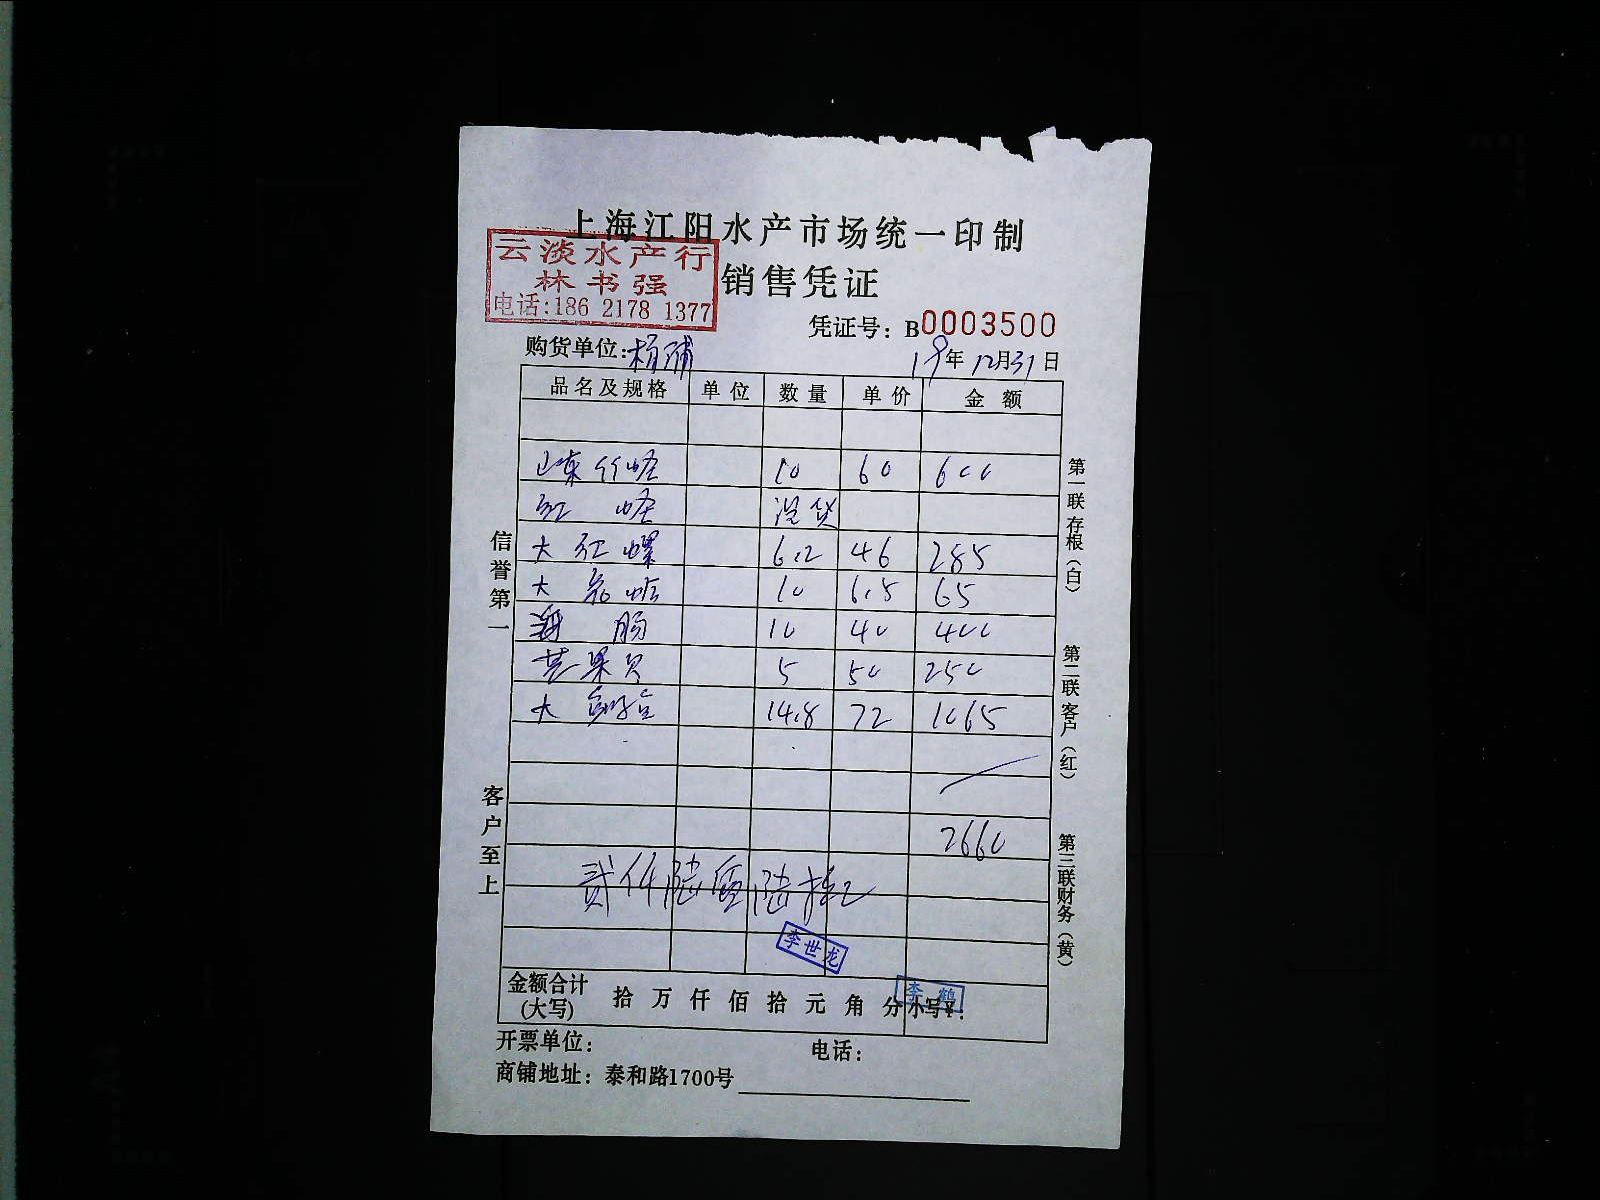 上海江阳水产市场统一印制
云淡水产行
林书强
电话:186 2178 1377
销售凭证
凭证号：B0003500
购货单位：杨浦 19年12月31日
品名及规格 单位 数量 单价 金额
山东竹蛏 10 60 600
红 蛏 混货
大红螺 6.2 46 285
大 蛤 10 6.5 65
海 肠 10 40 400
芒果贝 5 50 250
大 14.8 72 1065
2660
贰仟陆百陆拾元
李世龙
李鹤
金额合计(大写) 拾万仟佰拾元角分 小写¥：
开票单位： 电话：
商铺地址：泰和路1700号
信誉第一
客户至上
第一联存根（白）
第二联客户（红）
第三联财务（黄）